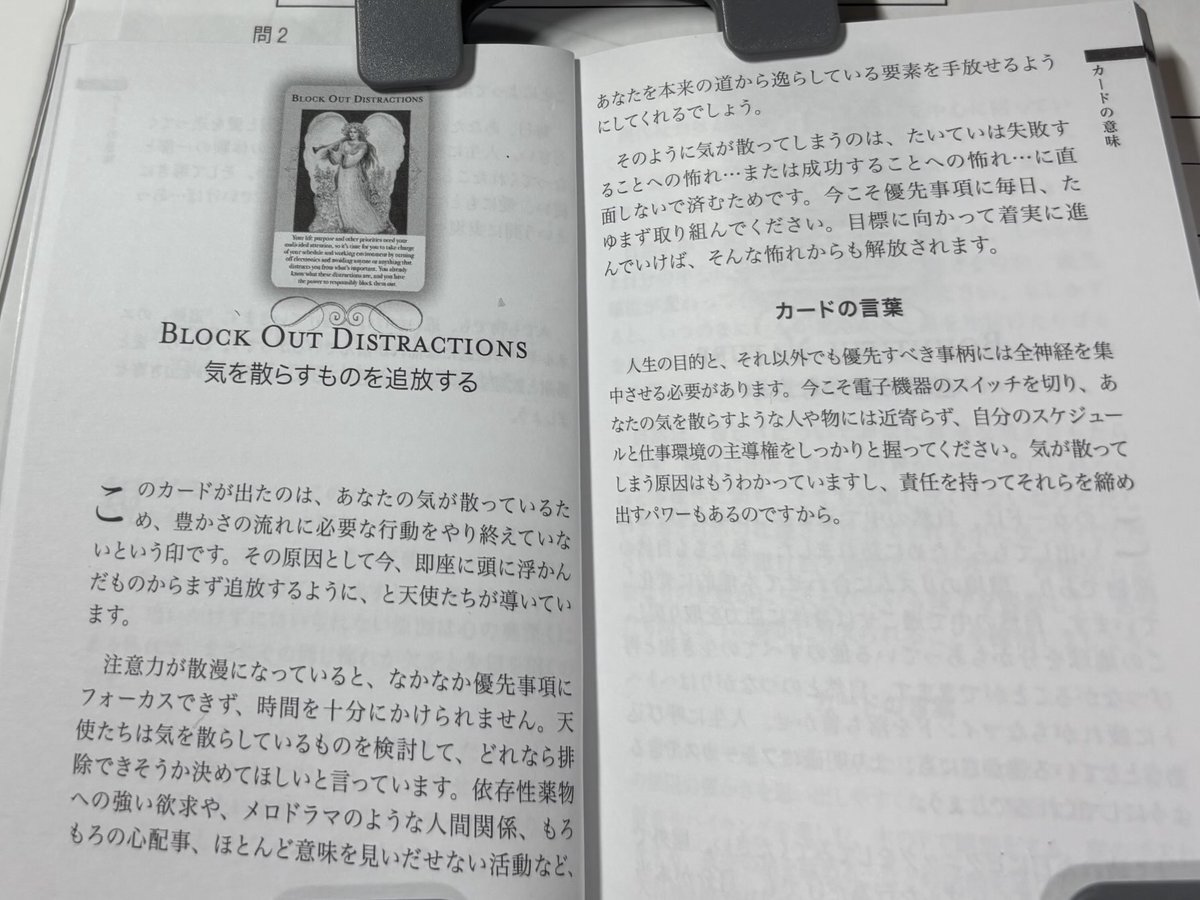 問2
BLOCK OUT DISTRACTIONS
Your life purpose and other priorities need your
undivided attention, so it's time for you to take charge
of your schedule and working environment by turning
off electronics and avoiding anyone or anything that
distracts you from what's important. You already
know what these distractions are, and you have
the power to responsibly block them out.
BLOCK OUT DISTRACTIONS
気を散らすものを追放する
このカードが出たのは、あなたの気が散っているた
め、豊かさの流れに必要な行動をやり終えていな
いという印です。その原因として今、即座に頭に浮かん
だものからまず追放するように、と天使たちが導いてい
ます。
注意力が散漫になっていると、なかなか優先事項に
フォーカスできず、時間を十分にかけられません。天
使たちは気を散らしているものを検討して、どれなら排
除できそうか決めてほしいと言っています。依存性薬物
への強い欲求や、メロドラマのような人間関係、もろ
もろの心配事、ほとんど意味を見いだせない活動など、
カードの意味
あなたを本来の道から逸らしている要素を手放せるよう
にしてくれるでしょう。
そのように気が散ってしまうのは、たいていは失敗す
ることへの怖れ…または成功することへの怖れ…に直
面しないで済むためです。今こそ優先事項に毎日、た
ゆまず取り組んでください。目標に向かって着実に進
んでいけば、そんな怖れからも解放されます。
カードの言葉
人生の目的と、それ以外でも優先すべき事柄には全神経を集
中させる必要があります。今こそ電子機器のスイッチを切り、あ
なたの気を散らすような人や物には近寄らず、自分のスケジュー
ルと仕事環境の主導権をしっかりと握ってください。気が散って
しまう原因はもうわかっていますし、責任を持ってそれらを締め
出すパワーもあるのですから。